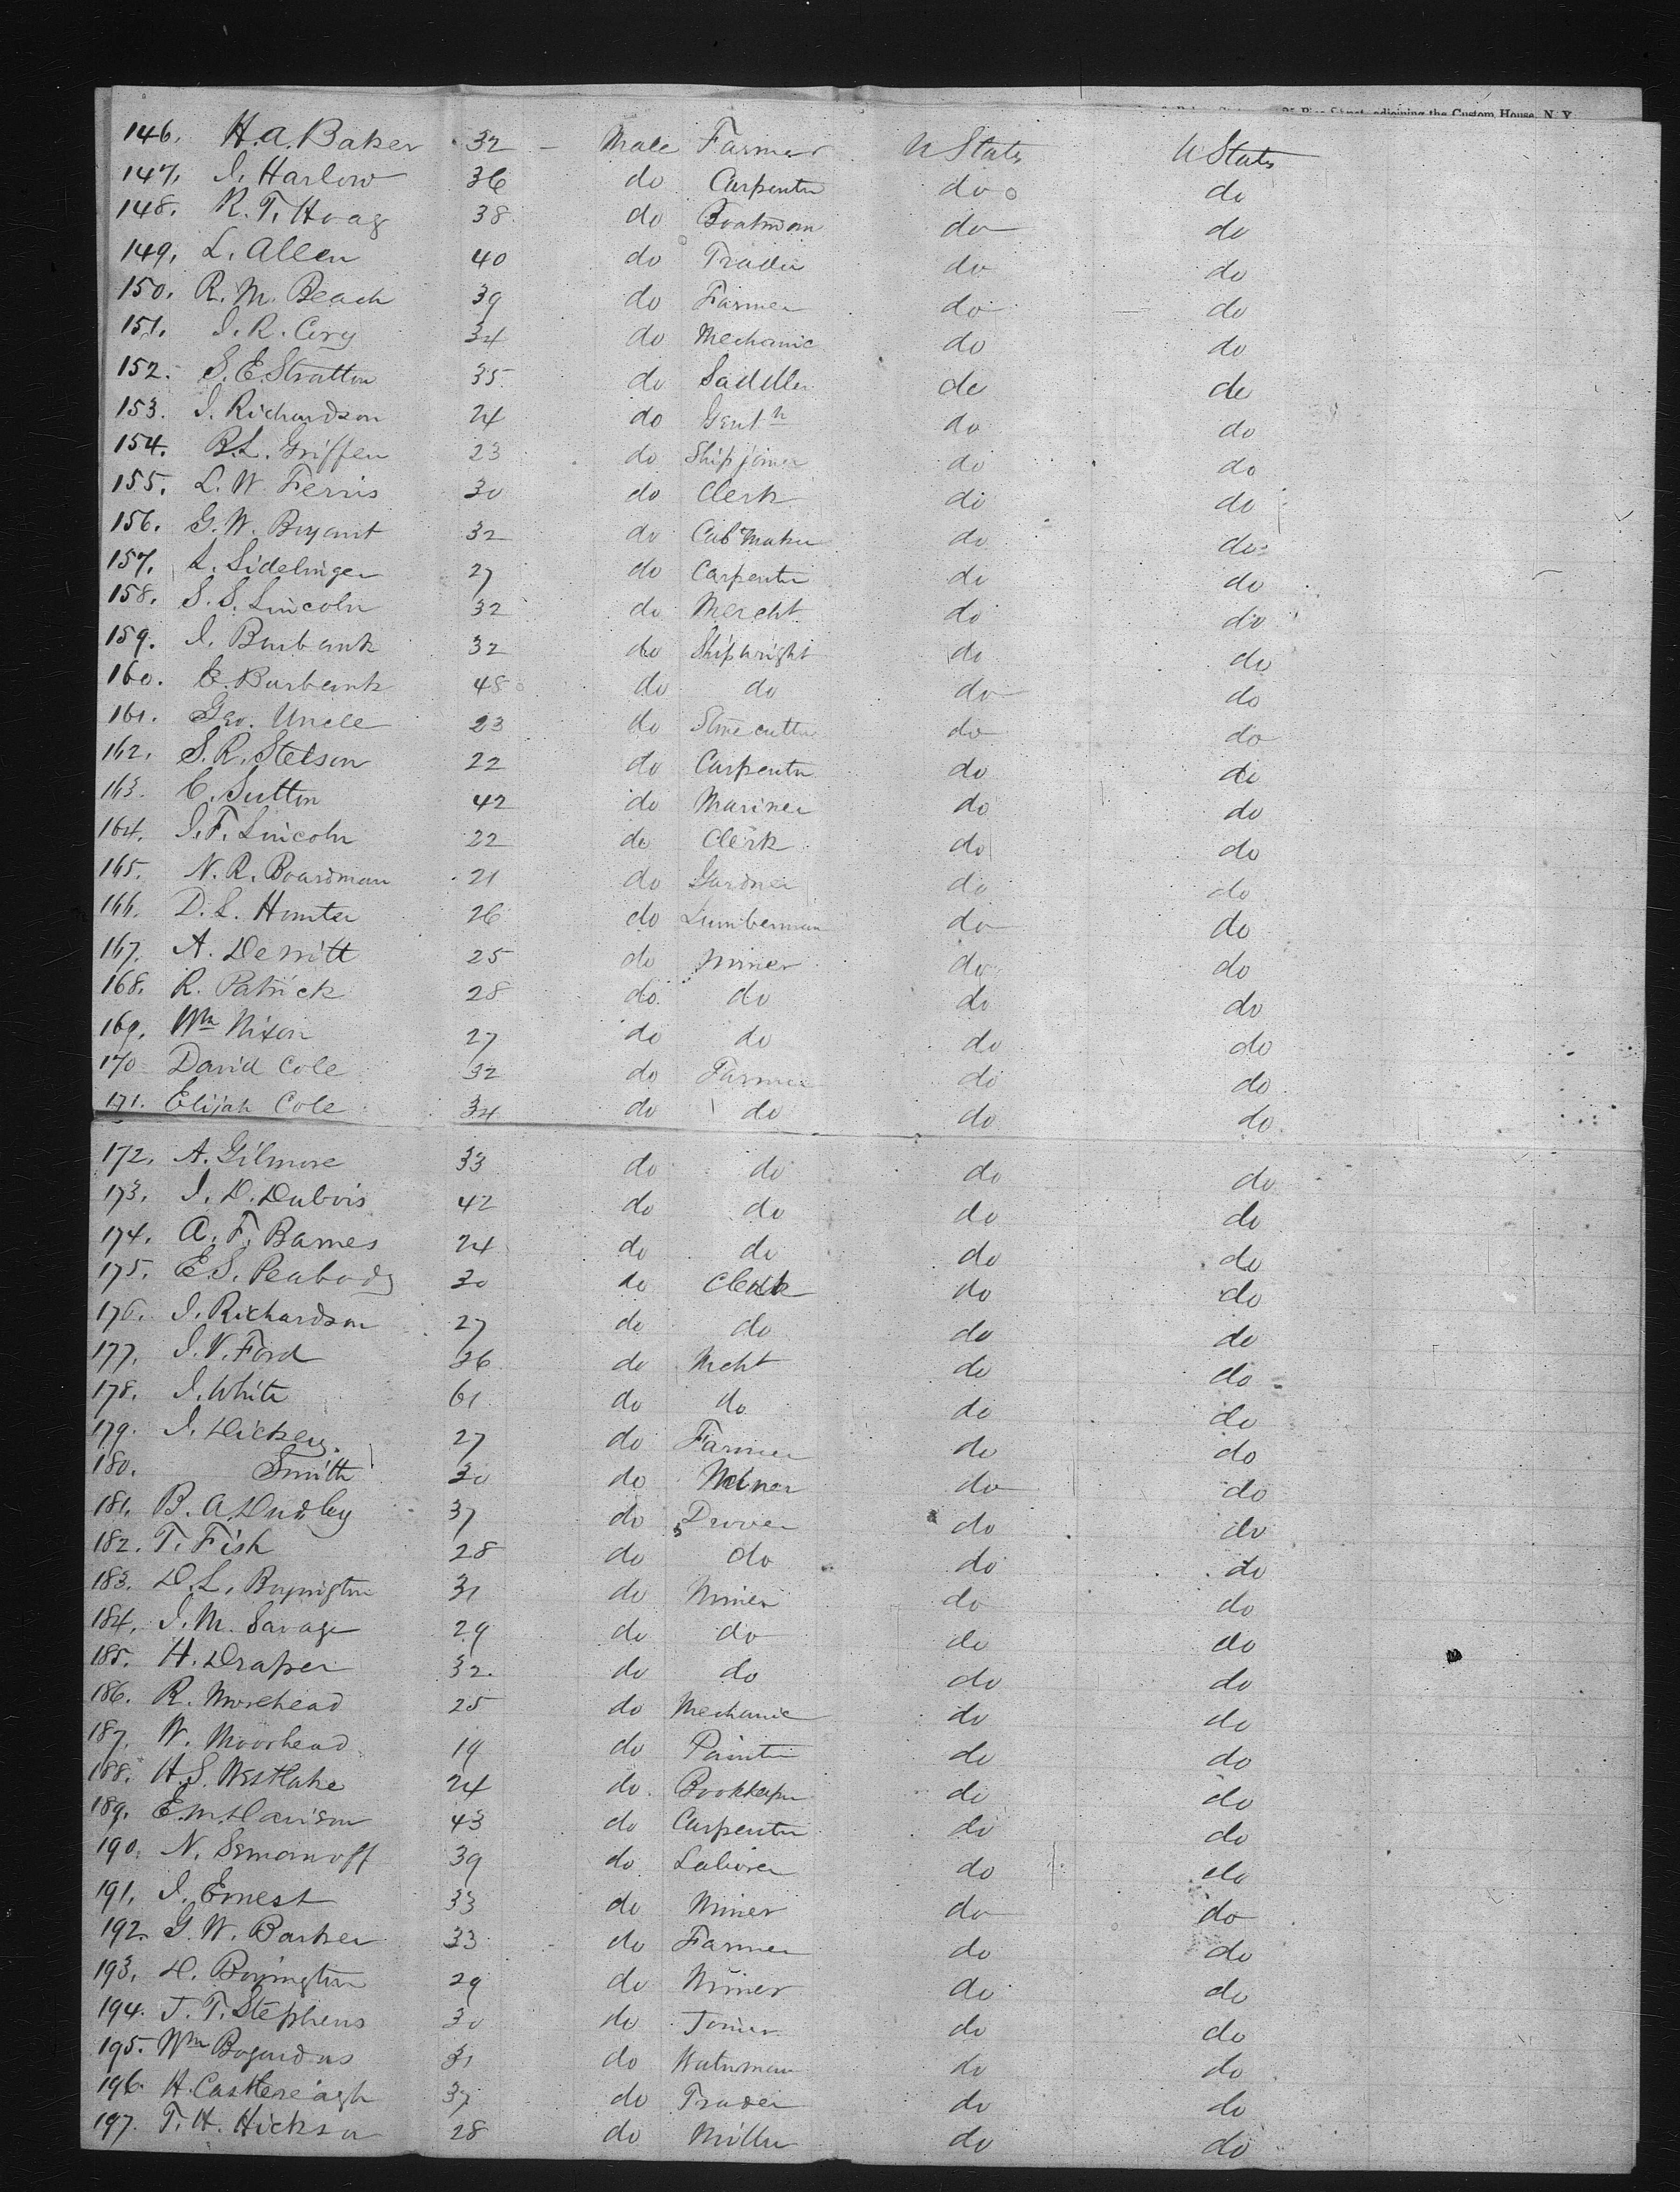 adjoining the Custom House, N. Y.
146. H. A. Baker 32 - Male Farmer U States U States
147. J. Harlow 36 do Carpenter do do
148. R. T. Hoag 38 do Boatman do do
149. L. Allen 40 do Trader do do
150. R. M. Beach 39 do Farmer do do
151. J. R. Cory 34 do Mechanic do do
152. S. E. Stratton 35 do Saddler do do
153. J. Richardson 24 do Gentn do do
154. B. L. Griffen 23 do Ship joiner do do
155. L. W. Ferris 30 do Clerk do do
156. G. W. Bryant 32 do Cabt Maker do do
157. L. Sidelinger 27 do Carpenter do do
158. S. S. Lincoln 32 do Mercht do do
159. J. Burbank 32 do Shipwright do do
160. E. Burbank 48 do do do do
161. Geo. Uncle 23 do Stone cutter do do
162. S. R. Stetson 22 do Carpenter do do
163. C. Sutton 42 do Mariner do do
164. J. F. Lincoln 22 do Clerk do do
165. N. R. Boardman 21 do Gardner do do
166. D. L. Hunter 26 do Lumberman do do
167. A. DeWitt 25 do Miner do do
168. R. Patrick 28 do do do do
169. Wm Nixon 27 do do do do
170 David Cole 32 do Farmer do do
171. Elijah Cole 34 do do do do
172. A. Gilmore 33 do do do do
173. J. D. Dubois 42 do do do do
174. A. F. Barnes 24 do do do do
175. E. S. Peabody 30 do Clerk do do
176. J. Richardson 27 do do do do
177. J. V. Ford 36 do Mcht do do
178. J. White 61 do do do do
179. J. Dickey. 27 do Farmer do do
180. Smith 30 do Miner do do
181. B. A. Dudley 37 do Drover do do
182. T. Fish 28 do do do do
183. D. L. Boyington 31 do Miner do do
184. J. M. Savage 29 do do do do
185. H. Draper 32. do do do do
186. R. Morehead 25 do Mechanic do do
187. W. Moorhead 19 do Painter do do
188. H. S. Westlake 24 do. Bookkeeper do do
189. E. M. Davison 43 do Carpenter do do
190. N. Semanoff 39 do Laborer do do
191. J. Ernest 33 do Miner do do
192. G. W. Barker 33 do Farmer do do
193. D. Boyington 29 do Miner do do
194. J. T. Stephens 30 do Joiner do do
195. Wm Bogardus 31 do Waterman do do
196. H. Castlereagh 37 do Trader do do
197. T. H. Hickson 28 do Miller do do